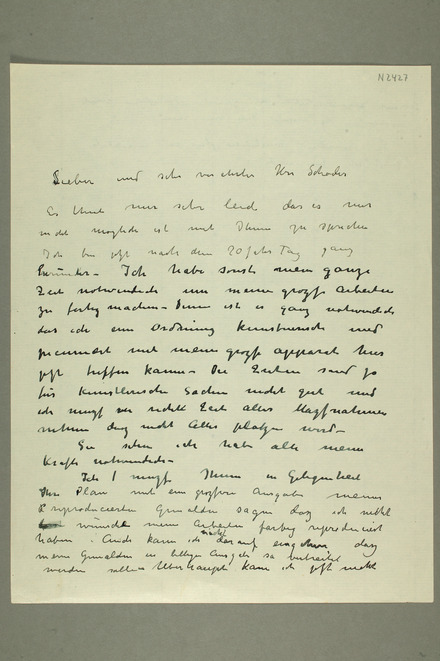 N2427
Lieber und sehr verehrter Herr Schreder
Es thut mir sehr leid das es mir
nicht möglich ist mit Ihnen zu sprechen
Ich bin jetzt nach dem 70 Jahr Tag ganz
Ich habe sonst mein ganze
Zeit notwendich um meine grozse Arbeiten
zu fertig machen – Denn ist es ganz notwendich
das ich ein Ordning kunstnerisch und
mit mein grozse apparat hier
jetzt treffen kanne – Die Zeiten sind jo
für Künstlerische Sachen nicht gut und
ich muzs zeit alles
nehmen daz nicht Alles wird –
Sie sehen ich habe alle meine
Krafte notwendich –
Ich muzs Ihnen in Gelegenheit
Ihre Plan mit ein grozsen Ausgabe meine
reproducierten Gemälden sagen daz ich nicht
wünsche meine Arbeiten farbig reproduciert
haben – Auch kann ich nicht darauf eingehen daz
meine Gemälden in billige Ausgabe so verbreitet
werden sollen Überhaupt kann ich jetzt nicht